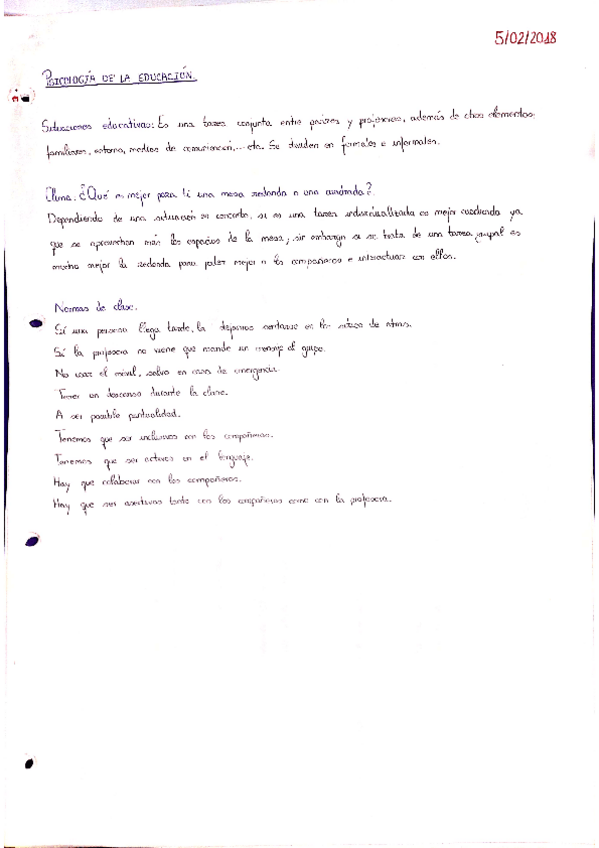 5/02/2018
PSICOLOGÍA DE LA EDUCACIÓN.
Situaciones educativas: Es una tarea conjunta entre padres y profesores, además de otros elementos:
familiares, entorno, medios de comunicación,... etc. Se dividen en formales e informales.
¿Qué es mejor para ti una mesa redonda o una cuadrada?
Dependiendo de una situación en concreto, si es una tarea individualizada es mejor cuadrada ya
que se aprovechan más los espacios de la mesa, sin embargo si se trata de una tarea grupal es
mucho mejor la redonda para poder mejor a los compañeros e interactuar con ellos.
Normas de clase.
Si una persona llega tarde, la dejamos sentarse en los sitios de atrás.
Si la profesora no viene que mande un mensaje al grupo.
No usar el móvil, salvo en caso de emergencia.
Tener un descanso durante la clase.
A ser posible puntualidad.
Tenemos que ser inclusivos con los compañeros.
Tenemos que ser activos en el lenguaje.
Hay que colaborar con los compañeros.
Hay que ser asertivos tanto con los compañeros como con la profesora.